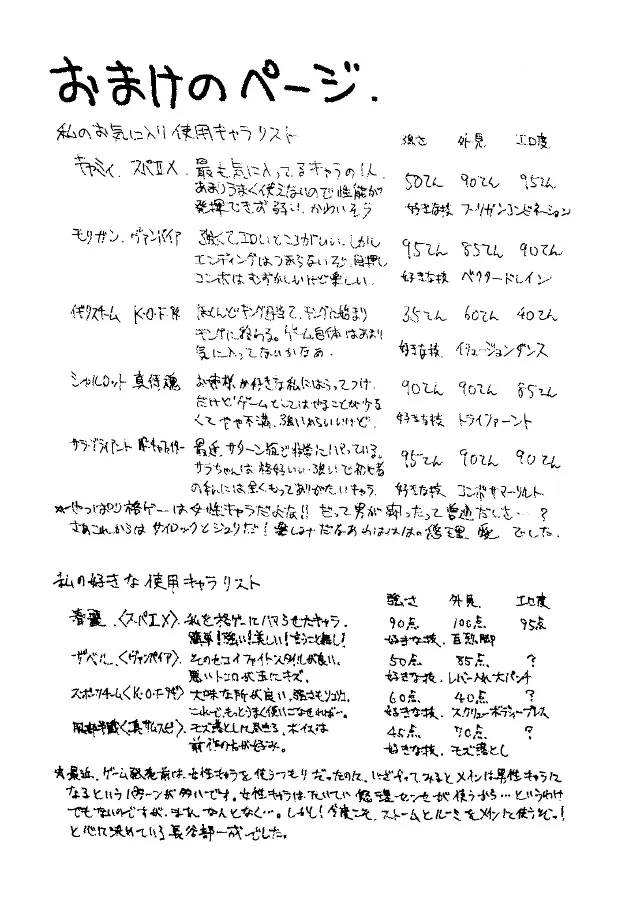 おまけのページ.
私のお気に入り使用キャラリスト 強さ 外見. エロ度
キャミィ. スパⅡX. 最も気に入ってるキャラの1人
あまりうまく使えないので性能が 50てん 90てん 95てん
発揮できず弱い. かわいそう 好きな技 フーリガンコンビネーション
モリガン. ヴァンパイア 強くてエロいところがいい. しかし
エンディングはつまらないぞ. 目押し 95てん 85てん 90てん
コンボはむずかしいけど楽しい. 好きな技 ベクタードレイン
イギリスチーム K・O・F ほとんどキング目当て. キングに始まり 35てん 60てん 40てん
キングに終わる。ゲーム自体はあまり
気に入ってないかなあ. 好きな技. イリュージョンダンス
シャルロット 真侍魂 お姉様が好きな私にはうってつけ.
だけどゲームとしてはやることが少な 90てん 90てん 85てん
くてやや不満. 強いからいいけど. 好きな技 トライファーント
サラ・ブライアント 最近. サターン版で非常にハマっている.
サラちゃんは格好いい・強いで初心者 95てん 90てん 90てん
の私には全くもってありがたいキャラ. 好きな技 コンボサマーソルト
☆やっぱり格ゲーは女性キャラだよな!! だって男が闘ったって普通だしさ…?
さあこれからはサイロックとジュリだ! 楽しみだなあわはははの 悠理 愛 でした.
私の好きな使用キャラリスト 強さ 外見. エロ度
春麗.〈スパⅡX〉. 私を格ゲーにハマらせたキャラ. 90点 100点 95点
簡単!強い!美しい!言うこと無し! 好きな技. 百烈脚
ザベル.〈ヴァンパイア〉. そのセコイファイトスタイルが良い. 50点 85点. ?
悪いトコロが玉にキズ. 好きな技. レバー入れ大パンチ
スポーツチーム〈K・O・F〉. 大味な所が良い. 強さもソコソコ. 60点 40点 ?
これで、もっとうまく使いこなせれば…. 好きな技. スクリューボディープレス
風間〈真サムスピ〉. モズ落としに燃える. ボイスは 45点. 70点. ?
前作の方が好み. 好きな技 モズ落とし
☆最近、ゲーム発売前は女性キャラを使うつもりだったのに、いざやってみるとメインは男性キャラに
なるというパターンが多いです。女性キャラはたいてい 悠理センセが使うから…というわけ
でもないのですが、まぁ、なんとなく…。しかし!今度こそ、ストームとルーミをメインで使うぞっ!
と心に決めている長谷部一成でした.